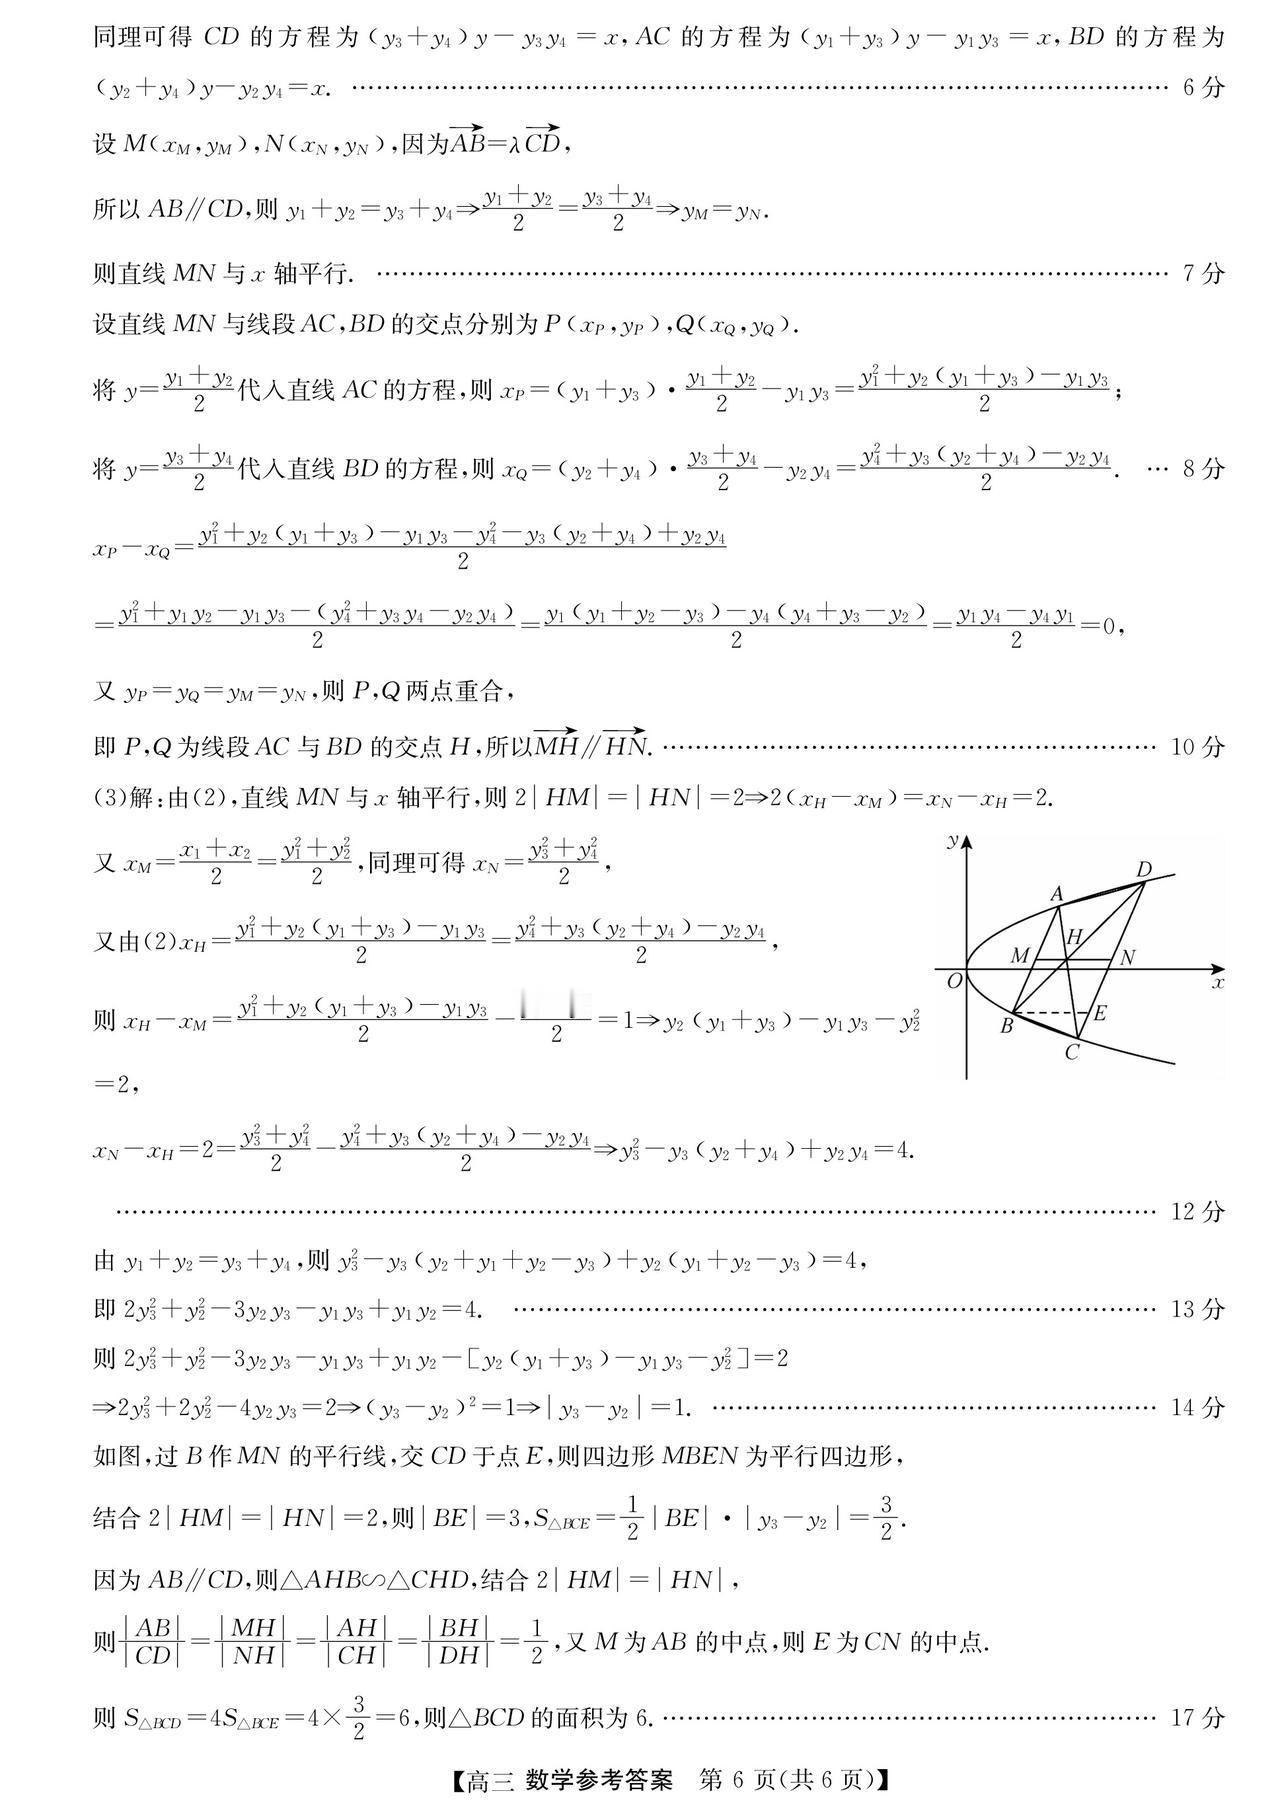 同理可得 CD 的方程为(y₃+y₄)y-y₃y₄=x,AC 的方程为(y₁+y₃)y-y₁y₃=x,BD 的方程为
(y₂+y₄)y-y₂y₄=x. …… 6 分
设 M(x_M,y_M),N(x_N,y_N),因为\overrightarrow{AB}=λ\overrightarrow{CD},
所以 AB∥CD,则 y₁+y₂=y₃+y₄⇒\frac{y₁+y₂}{2}=\frac{y₃+y₄}{2}⇒y_M=y_N.
则直线 MN 与 x 轴平行. …… 7 分
设直线 MN 与线段 AC,BD 的交点分别为 P(x_P,y_P),Q(x_Q,y_Q).
将 y=\frac{y₁+y₂}{2}代入直线 AC 的方程,则 x_P=(y₁+y₃)·\frac{y₁+y₂}{2}-y₁y₃=\frac{y₁²+y₂(y₁+y₃)-y₁y₃}{2};
将 y=\frac{y₃+y₄}{2}代入直线 BD 的方程,则 x_Q=(y₂+y₄)·\frac{y₃+y₄}{2}-y₂y₄=\frac{y₄²+y₃(y₂+y₄)-y₂y₄}{2}. … 8 分
x_P-x_Q=\frac{y₁²+y₂(y₁+y₃)-y₁y₃-y₄²-y₃(y₂+y₄)+y₂y₄}{2}
=\frac{y₁²+y₁y₂-y₁y₃-(y₄²+y₃y₄-y₂y₄)}{2}=\frac{y₁(y₁+y₂-y₃)-y₄(y₄+y₃-y₂)}{2}=\frac{y₁y₄-y₄y₁}{2}=0,
又 y_P=y_Q=y_M=y_N,则 P,Q 两点重合,
即 P,Q 为线段 AC 与 BD 的交点 H,所以\overrightarrow{MH}∥\overrightarrow{HN}. …… 10 分
(3)解:由(2),直线 MN 与 x 轴平行,则 2|HM|=|HN|=2⇒2(x_H-x_M)=x_N-x_H=2.
又 x_M=\frac{x₁+x₂}{2}=\frac{y₁²+y₂²}{2},同理可得 x_N=\frac{y₃²+y₄²}{2},
又由(2)x_H=\frac{y₁²+y₂(y₁+y₃)-y₁y₃}{2}=\frac{y₄²+y₃(y₂+y₄)-y₂y₄}{2},
则 x_H-x_M=\frac{y₁²+y₂(y₁+y₃)-y₁y₃}{2}-\frac{}{2}=1⇒y₂(y₁+y₃)-y₁y₃-y₂²
=2,
x_N-x_H=2=\frac{y₃²+y₄²}{2}-\frac{y₄²+y₃(y₂+y₄)-y₂y₄}{2}⇒y₃²-y₃(y₂+y₄)+y₂y₄=4.
…… 12 分
y
D
A
H
M
N
O
x
B
E
C
由 y₁+y₂=y₃+y₄,则 y₃²-y₃(y₂+y₁+y₂-y₃)+y₂(y₁+y₂-y₃)=4,
即 2y₃²+y₂²-3y₂y₃-y₁y₃+y₁y₂=4. …… 13 分
则 2y₃²+y₂²-3y₂y₃-y₁y₃+y₁y₂-[y₂(y₁+y₃)-y₁y₃-y₂²]=2
⇒2y₃²+2y₂²-4y₂y₃=2⇒(y₃-y₂)²=1⇒|y₃-y₂|=1. …… 14 分
如图,过 B 作 MN 的平行线,交 CD 于点 E,则四边形 MBEN 为平行四边形,
结合 2|HM|=|HN|=2,则|BE|=3,S_{△BCE}=\frac{1}{2}|BE|·|y₃-y₂|=\frac{3}{2}.
因为 AB∥CD,则△AHB∽△CHD,结合 2|HM|=|HN|,
则\frac{|AB|}{|CD|}=\frac{|MH|}{|NH|}=\frac{|AH|}{|CH|}=\frac{|BH|}{|DH|}=\frac{1}{2},又 M 为 AB 的中点,则 E 为 CN 的中点.
则 S_{△BCD}=4S_{△BCE}=4×\frac{3}{2}=6,则△BCD 的面积为 6. …… 17 分
【高三 数学参考答案 第 6 页(共 6 页)】